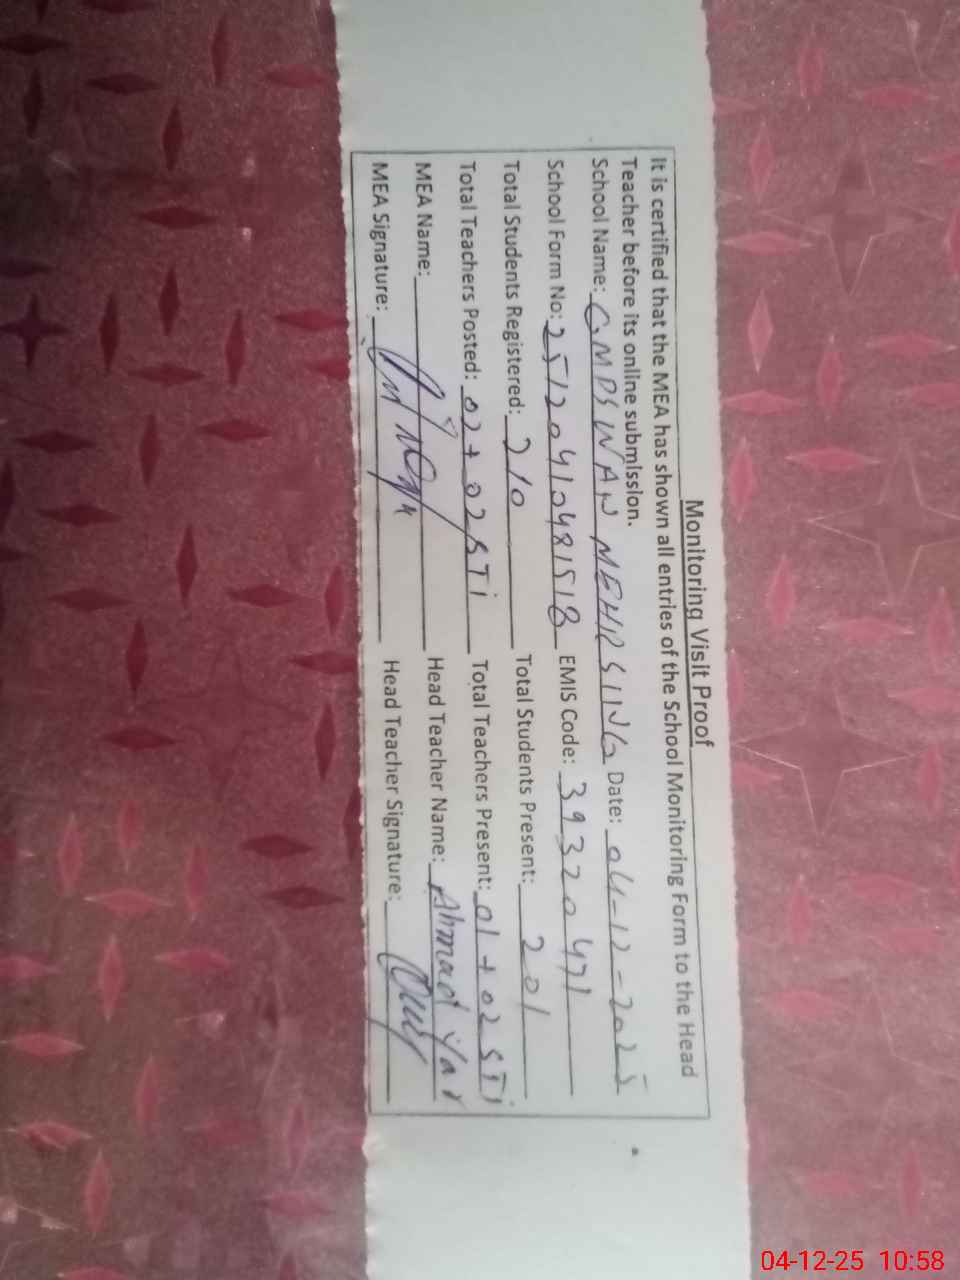 Monitoring Visit Proof
It is certified that the MEA has shown all entries of the School Monitoring Form to the Head
Teacher before its online submission.
School Name: GMPS WAN MEHR SING Date: 04-12-2025
School Form No: 25120410481518 EMIS Code: 39320471
Total Students Registered: 210 Total Students Present: 201
Total Teachers Posted: 02+02 STi Total Teachers Present: 01+02 STi
MEA Name: Head Teacher Name: Ahmad Yar
MEA Signature: Head Teacher Signature:
04-12-25 10:58